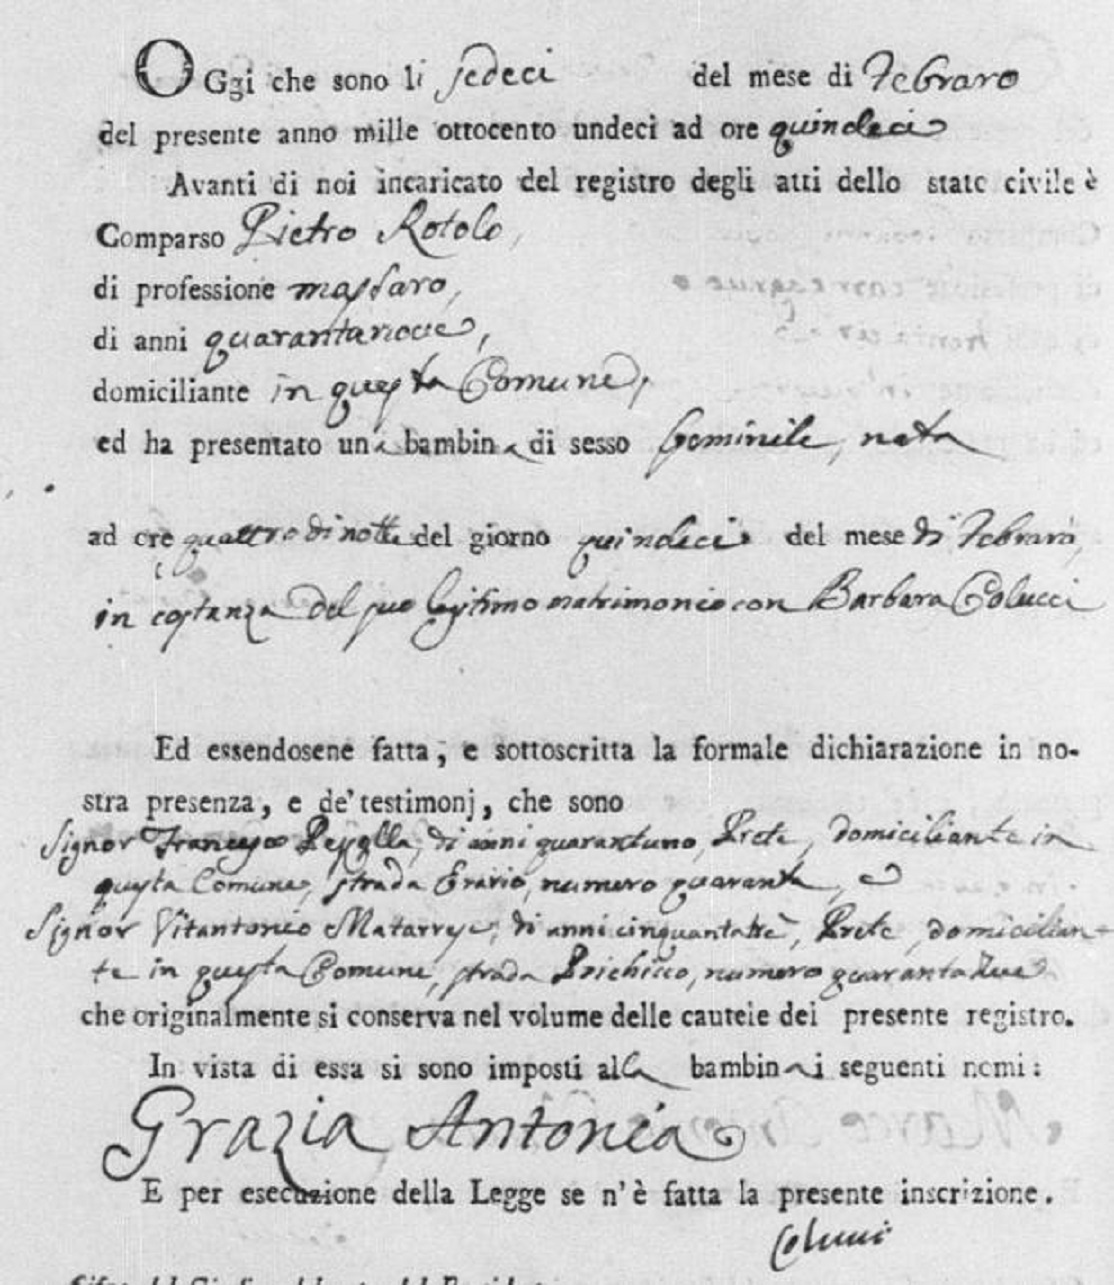 OGgi che sono li sedeci del mese di Febraro
del presente anno mille ottocento undeci ad ore quindeci
Avanti di noi incaricato del registro degli atti dello stato civile è
Comparso Pietro Rotolo,
di professione massaro,
di anni quarantanove,
domiciliante in questa Comune,
ed ha presentato una bambina di sesso feminile, nata
ad ore quattro di notte del giorno quindeci del mese di Febraro,
in costanza del suo legitimo matrimonio con Barbara Colucci
Ed essendosene fatta, e sottoscritta la formale dichiarazione in no-
stra presenza, e de' testimonj, che sono
Signor Francesco di anni quarantuno, Prete, domiciliante in
questa Comune, strada Erario, numero quaranta, e
Signor Vitantonio Matarrese, di anni cinquantatrè, Prete, domicilian-
te in questa Comune, strada numero quarantadue
che originalmente si conserva nel volume delle cautele del presente registro.
In vista di essa si sono imposti alla bambina i seguenti nomi:
Grazia Antonia
E per esecuzione della Legge se n'è fatta la presente inscrizione.
Colucci